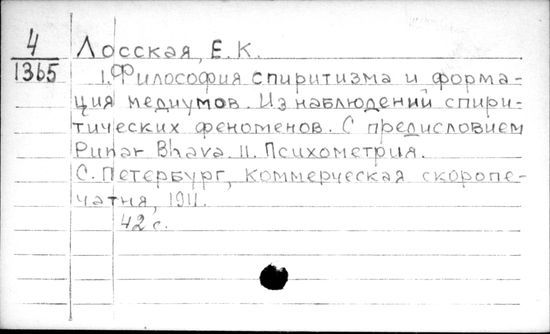 4
1365
Лосская, Е.К.
I. Философия спиритизма и форма-
ция медиумов. Из наблюдений спири-
тических феноменов. С предисловием
Punar Bhava. II. Психометрия.
С. Петербург, Коммерческая скоропе-
чатня, 1911.
42 с.